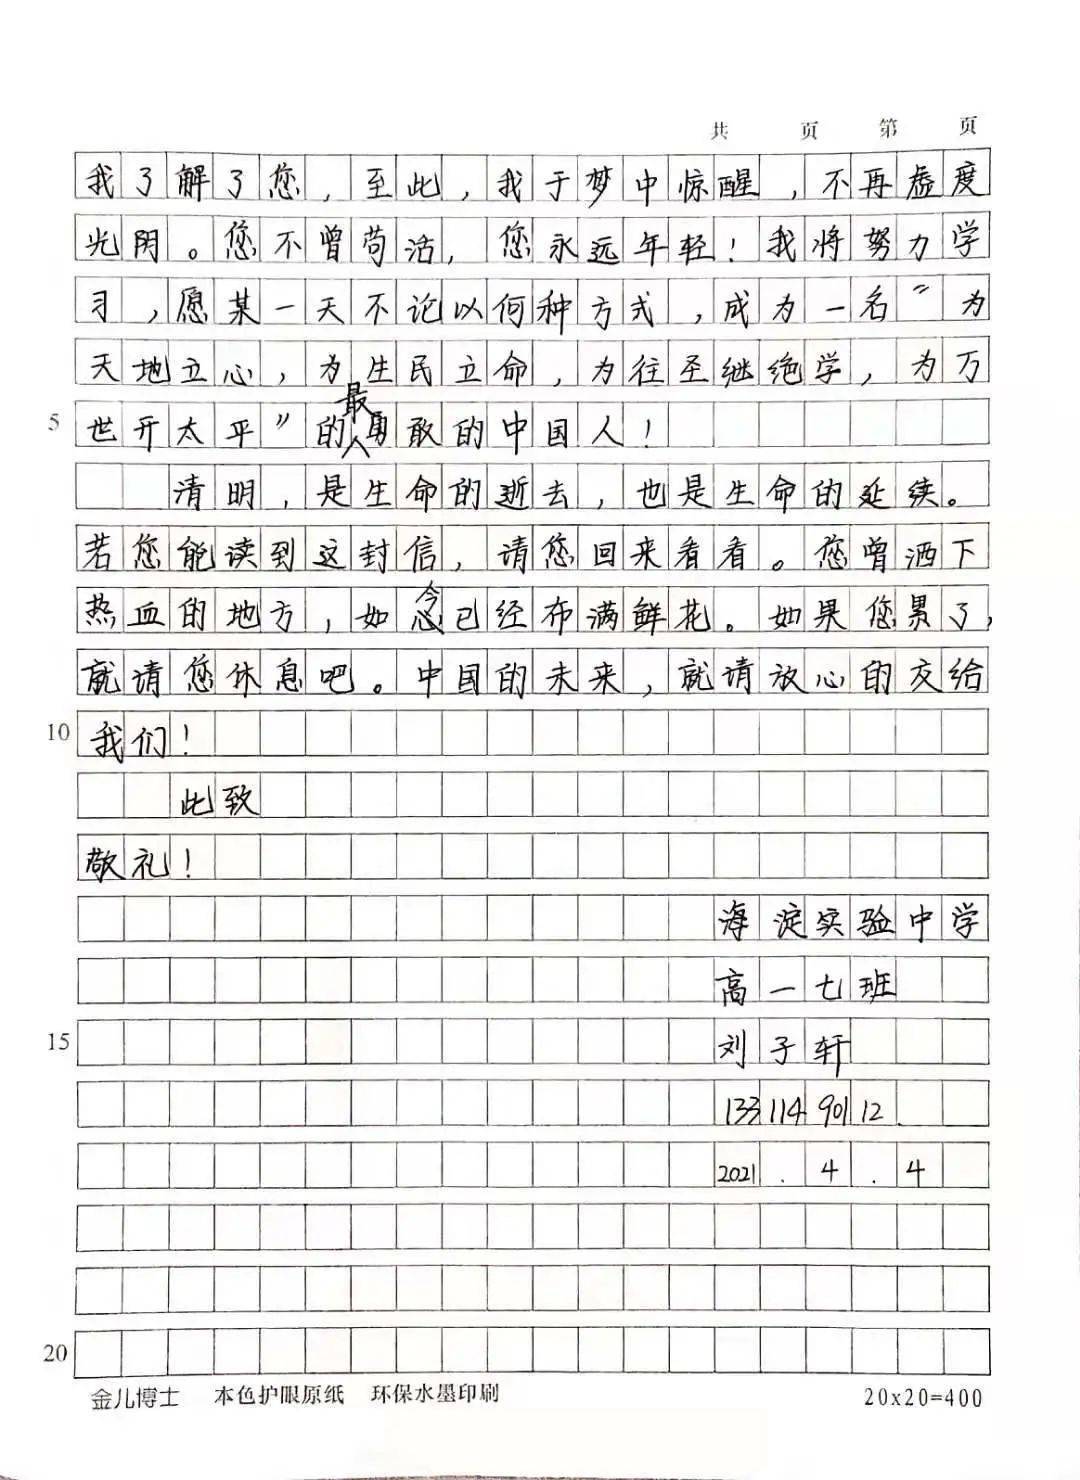 共 页 第 页
我了解了您，至此，我于梦中惊醒，不再虚度
光阴。您不曾苟活，您永远年轻！我将努力学
习，愿某一天不论以何种方式，成为一名“为
天地立心，为生民立命，为往圣继绝学，为万
5 世开太平”的最勇敢的中国人！
清明，是生命的逝去，也是生命的延续。
若您能读到这封信，请您回来看看。您曾洒下
热血的地方，如今已经布满鲜花。如果您累了，
就请您休息吧。中国的未来，就请放心的交给
10 我们！
此致
敬礼！
海淀实验中学
高一七班
15 刘子轩
133 114 901 12
2021.4.4
20
金儿博士 本色护眼原纸 环保水墨印刷 20x20=400